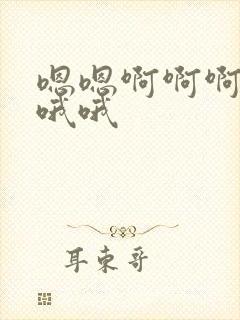 嗯嗯啊啊啊
哦哦
耳东哥